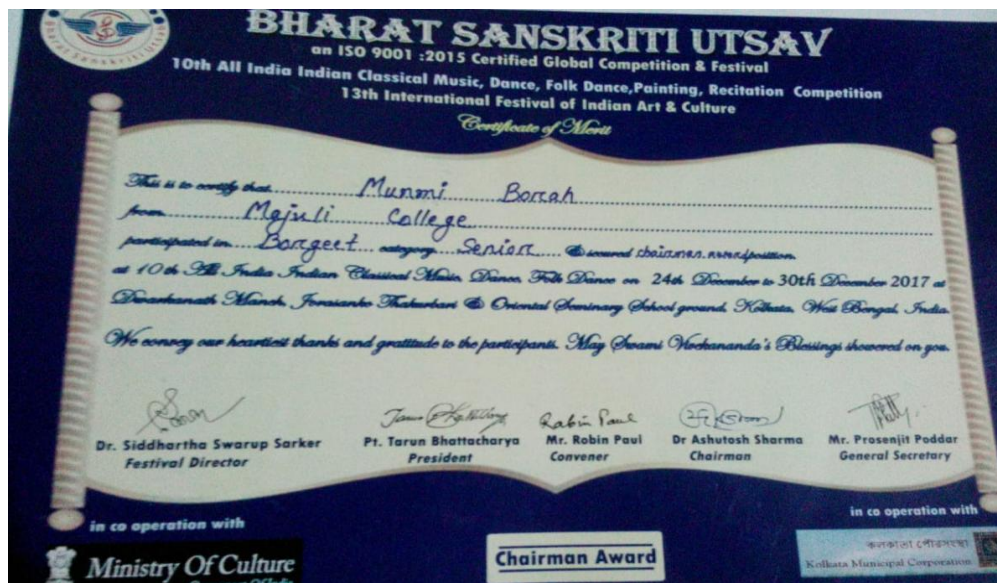 BHARAT SANSKRITI UTSAV
Bharat Sanskriti Utsav
an ISO 9001 :2015 Certified Global Competition & Festival
10th All India Indian Classical Music, Dance, Folk Dance,Painting, Recitation Competition
13th International Festival of Indian Art & Culture
Certificate of Merit
This is to certify that Munmi Borah
from Majuli College
participated in Borgeet category Senior & secured chairman award position.
at 10th All India Indian Classical Music, Dance, Folk Dance on 24th December to 30th December 2017 at
Dwarkanath Manch, Jorasanko Thakurbari & Oriental Seminary School ground, Kolkata, West Bengal, India.
We convey our heartiest thanks and gratitude to the participants. May Swami Vivekananda's Blessings showered on you.
Robin Paul
Dr. Siddhartha Swarup Sarker Pt. Tarun Bhattacharya Mr. Robin Paul Dr Ashutosh Sharma Mr. Prosenjit Poddar
Festival Director President Convener Chairman General Secretary
in co operation with in co operation with
Ministry Of Culture Chairman Award কলকাতা পৌরসংস্থা
Kolkata Municipal Corporation